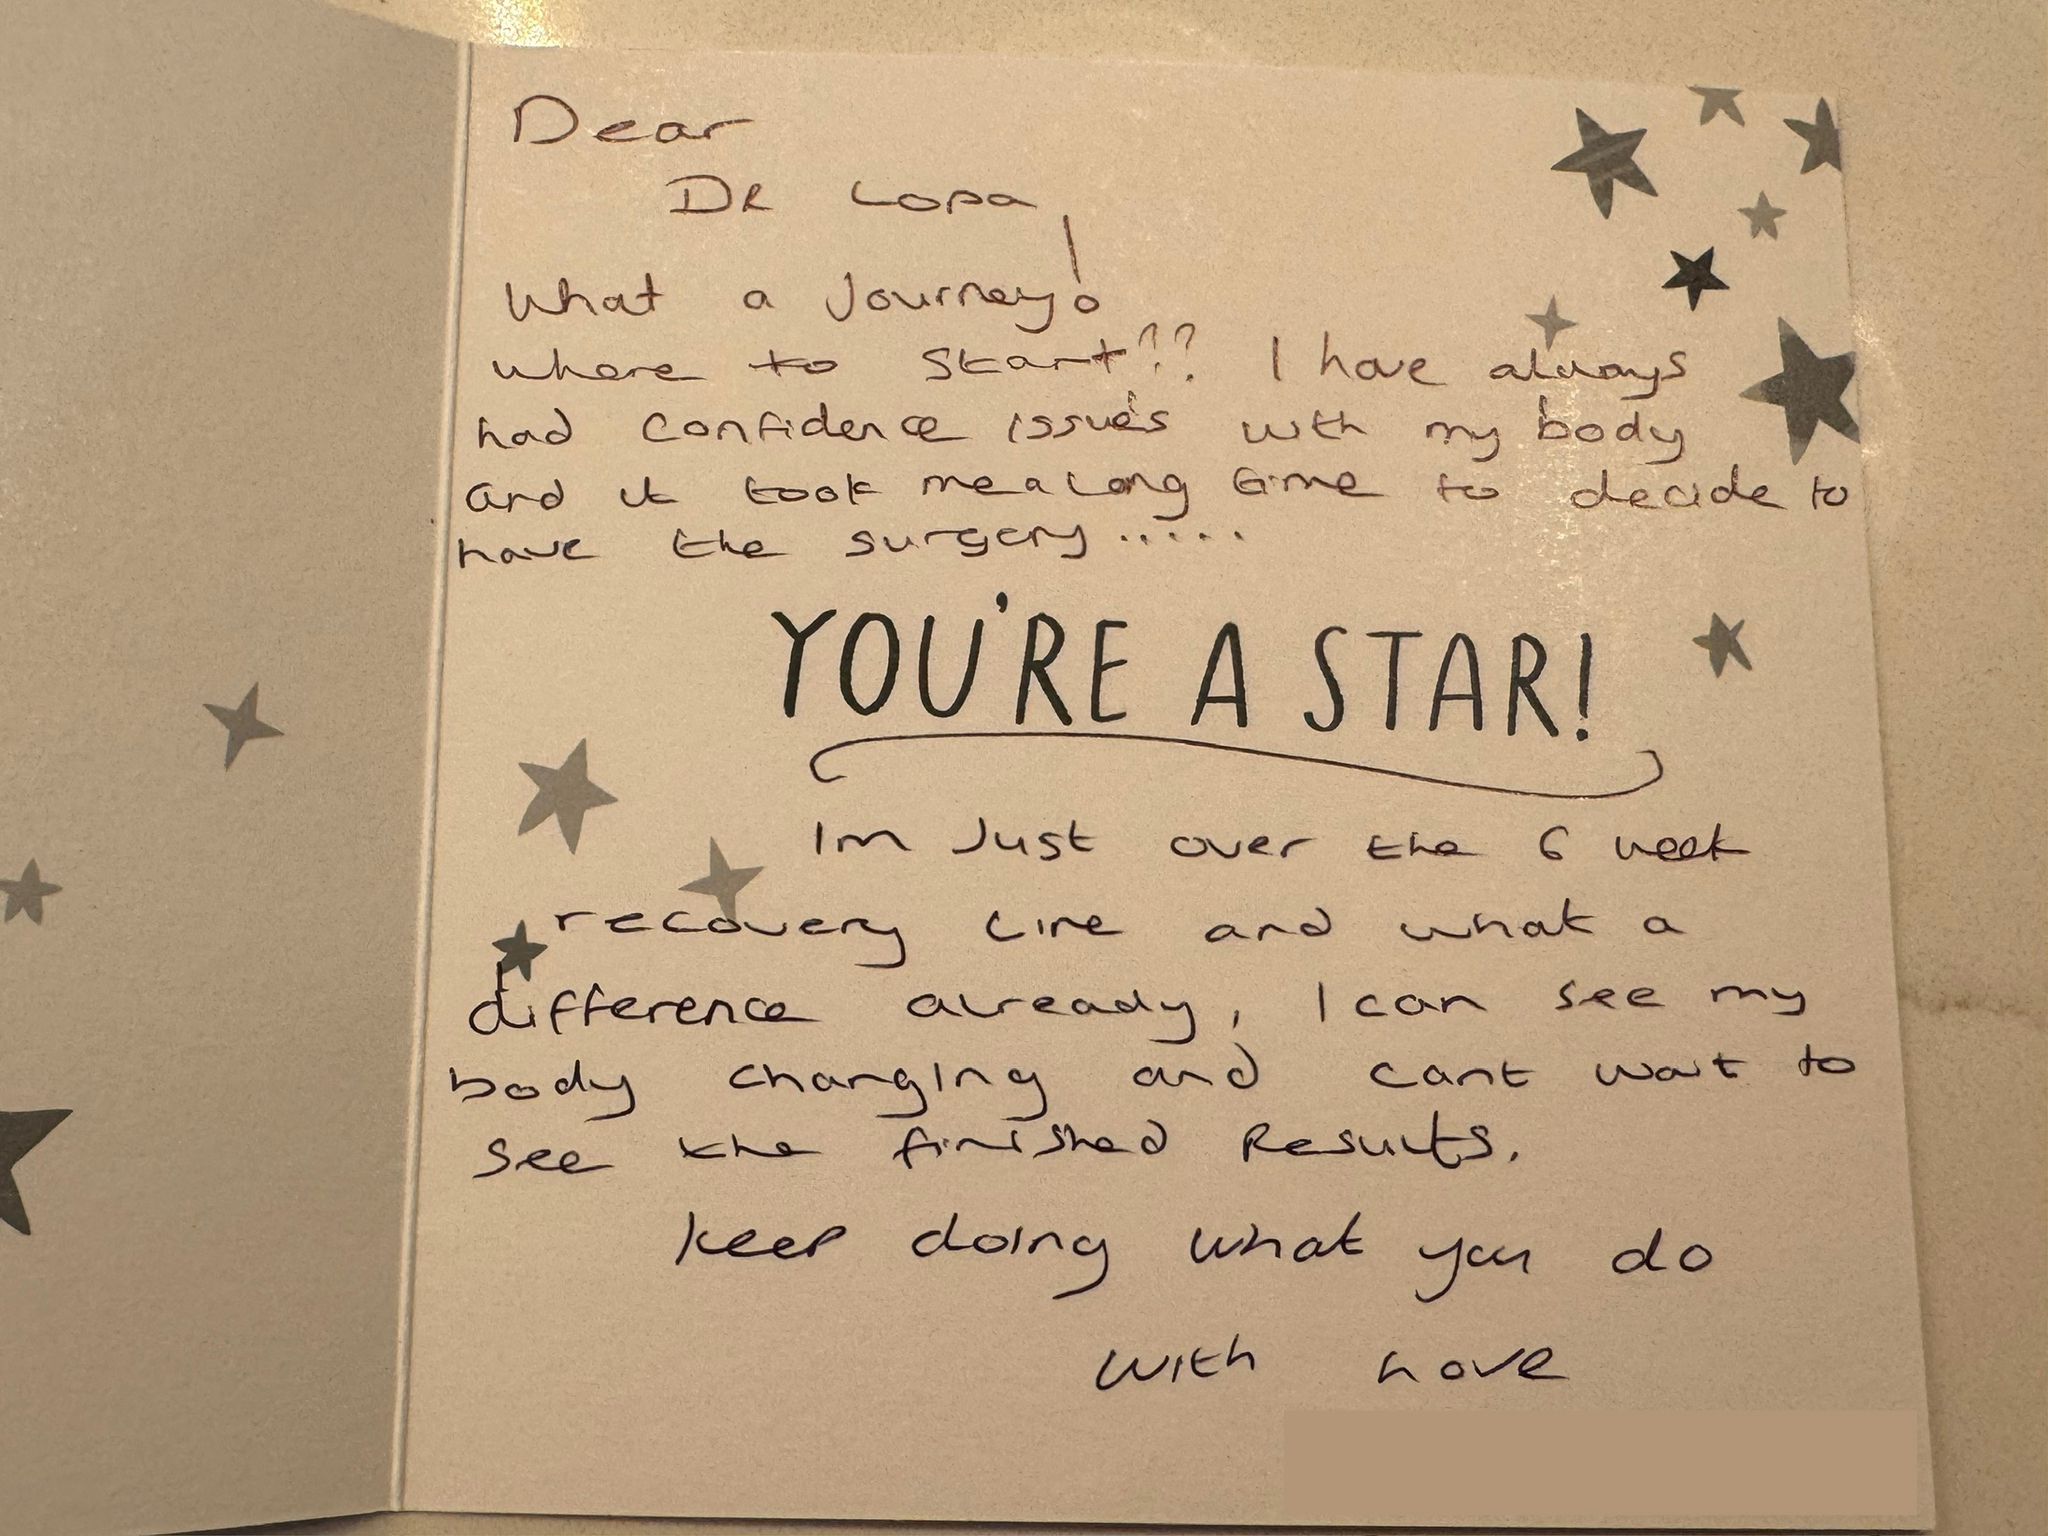 Dear
DR Lopa
What a Journey!
where to start?? I have always
had confidence issues with my body
and it took me a long time to decide to
have the surgery.....
YOU'RE A STAR!
Im Just over the 6 week
recovery line and what a
difference already, I can see my
body changing and cant wait to
see the finished Results.
keep doing what you do
with love